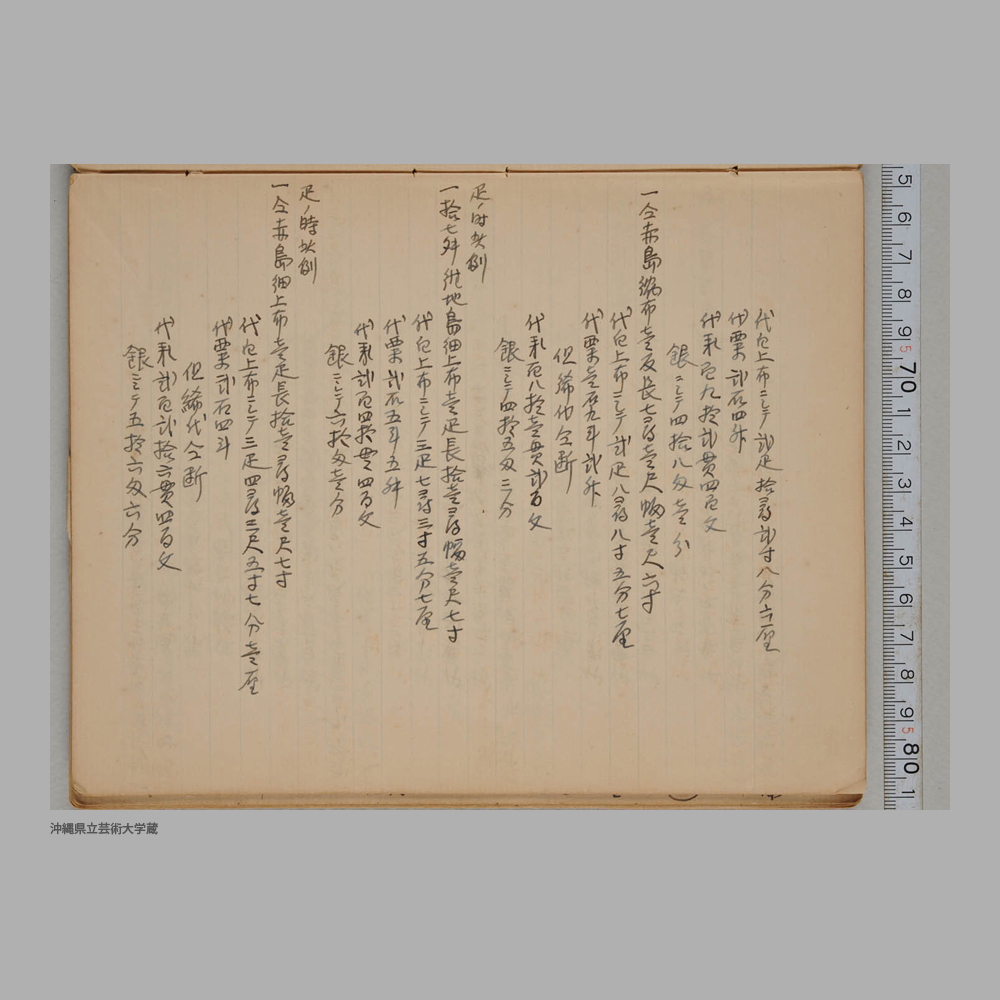 代白上布ニシテ 弐疋拾尋弐寸八分六厘
代粟 弐石四升
代乳 百九拾弐貫四百文
銀ニシテ 四拾八匁壱分
一 仝赤島縮布壱反長七尋壱尺幅壱尺六寸
代白上布ニシテ 弐疋八尋八寸五分七厘
代粟 壱石九斗弐升
但 縮代仝断
代乳 百八拾壱貫弐百文
銀ニシテ 四拾五匁三分
疋ノ時㳒例
一 拾七舛紺地島細上布壱疋長拾壱尋幅壱尺七寸
代白上布ニシテ 三疋七尋三寸五分七厘
代粟 弐石五斗五升
代乳 弐百四拾貫四百文
銀ニシテ 六拾匁壱分
疋ノ時㳒例
一 仝赤島細上布壱疋長拾壱尋幅壱尺七寸
代白上布ニシテ 三疋四尋三尺五寸七分壱厘
代粟 弐石四斗
但 縮代仝断
代乳 弐百弐拾六貫四百文
銀ニシテ 五拾六匁六分
5 6 7 8 9 5 70 1 2 3 4 5 6 7 8 9 5 80 1
沖縄県立芸術大学蔵